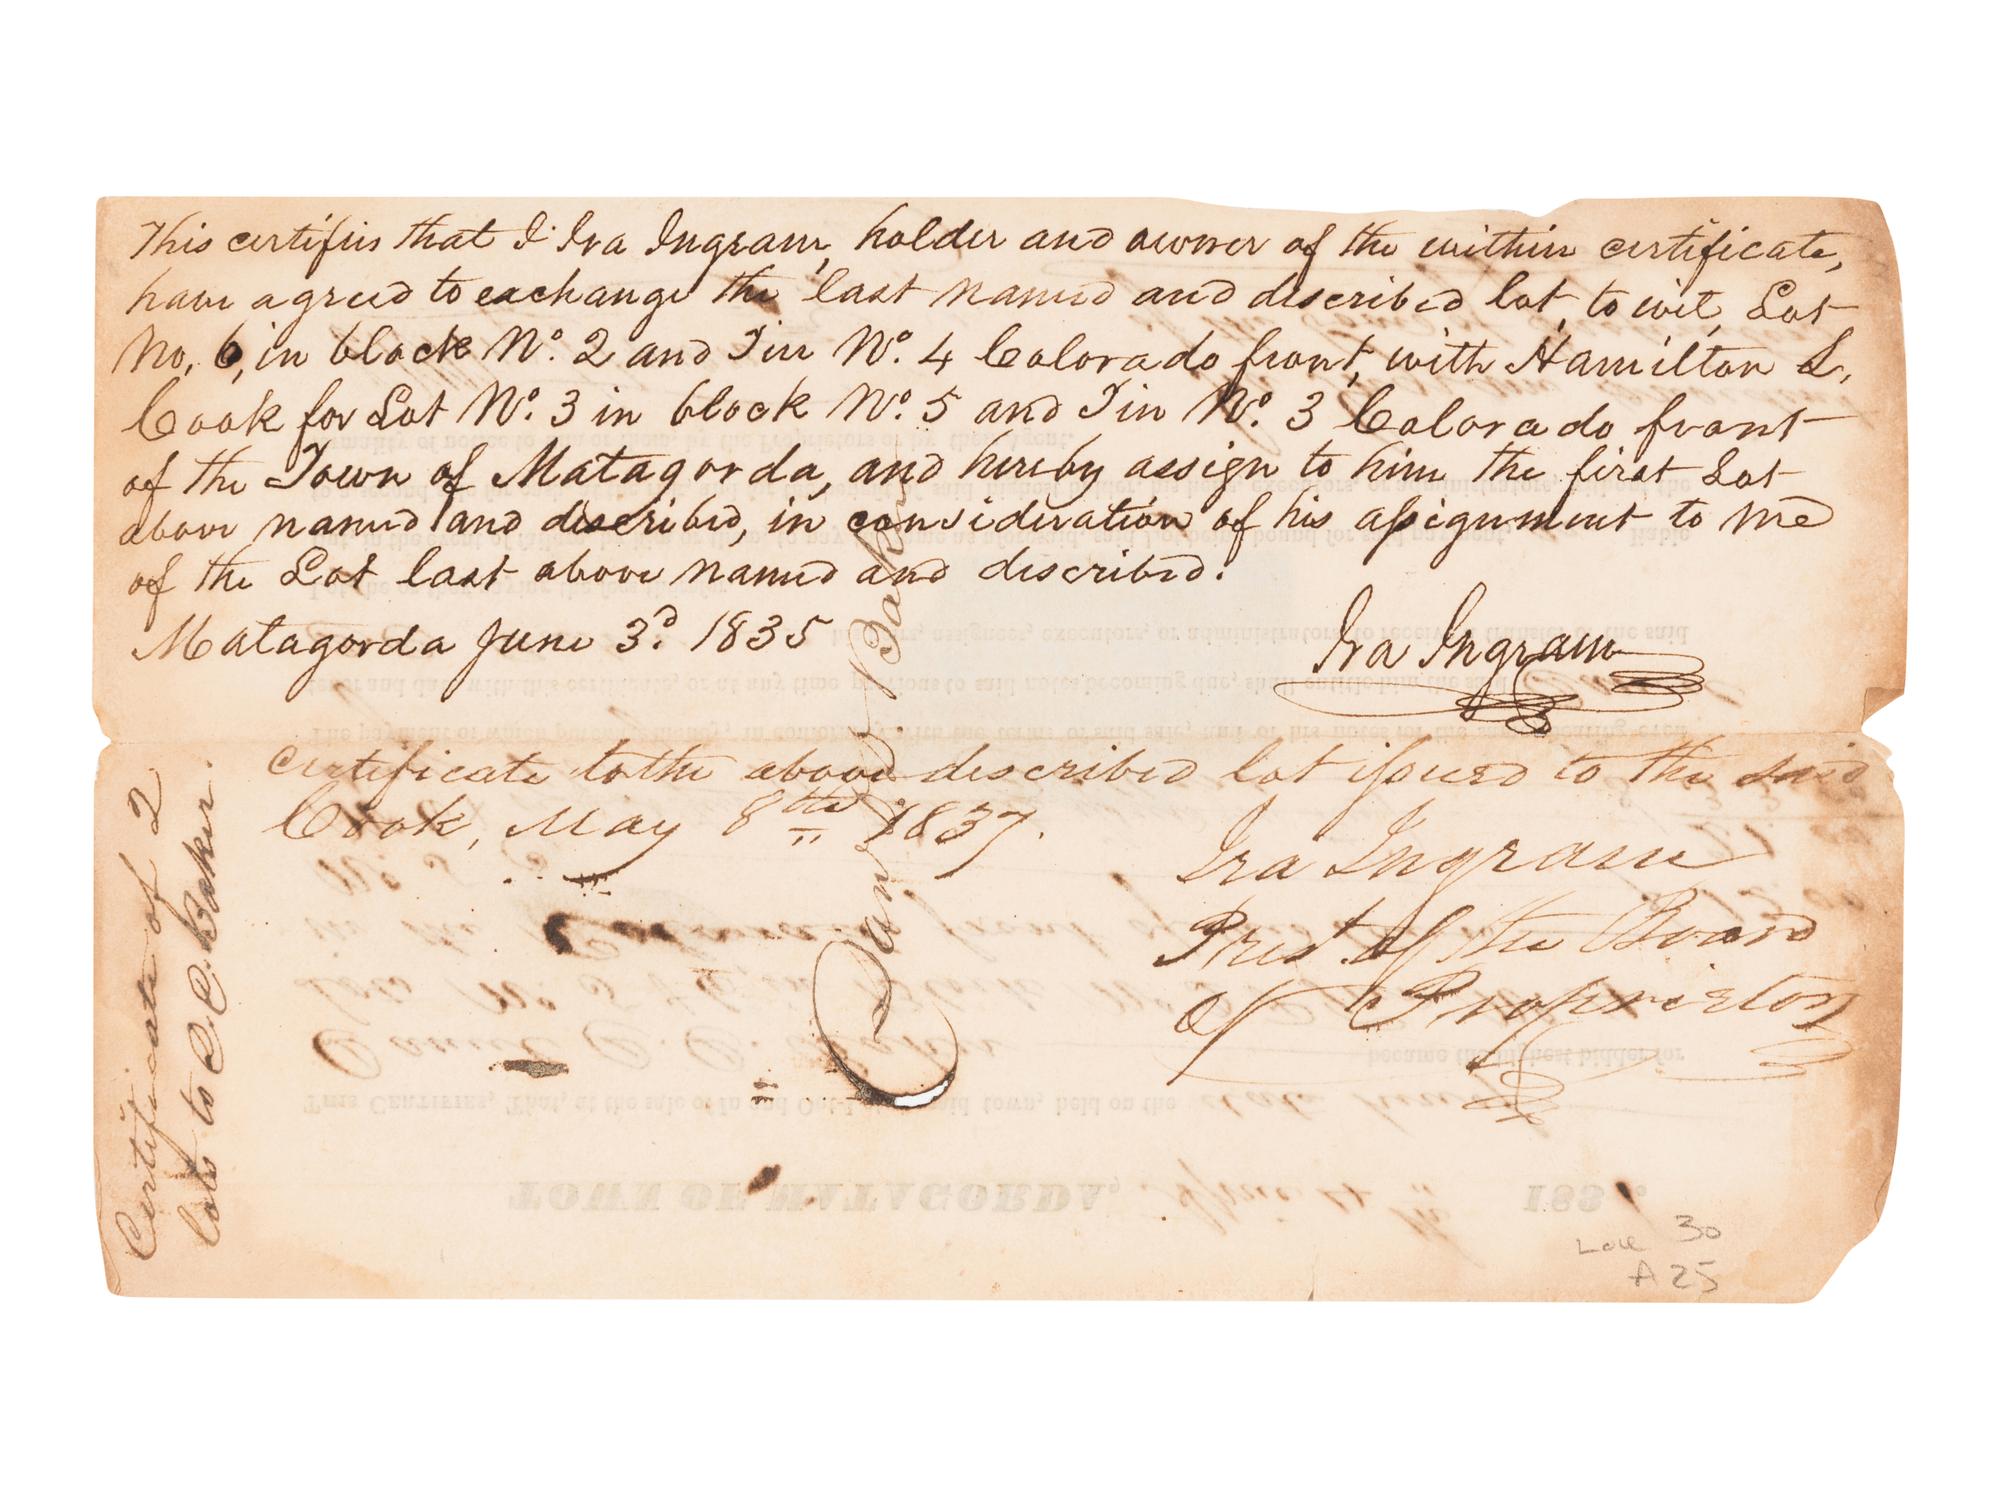 This certifies that I Ira Ingram, holder and owner of the within certificate,
have agreed to exchange the last named and described lot, to wit, Lot
No. 6, in block No. 2 and Tier No. 4 Colorado front, with Hamilton L.
Cook for Lot No. 3 in block No. 5 and Tier No. 3 Colorado front
of the Town of Matagorda, and hereby assign to him the first Lot
above named and described, in consideration of his assignment to me
of the Lot last above named and described.
Matagorda June 3d. 1835
Ira Ingram
Certificate to the above described lot issued to the said
Cook, May 8th 1837.
Ira Ingram
Prest. of the Board
of Proprietors
Certificate of 2
Lots to D. C. Baker.
Baker
30
A 25